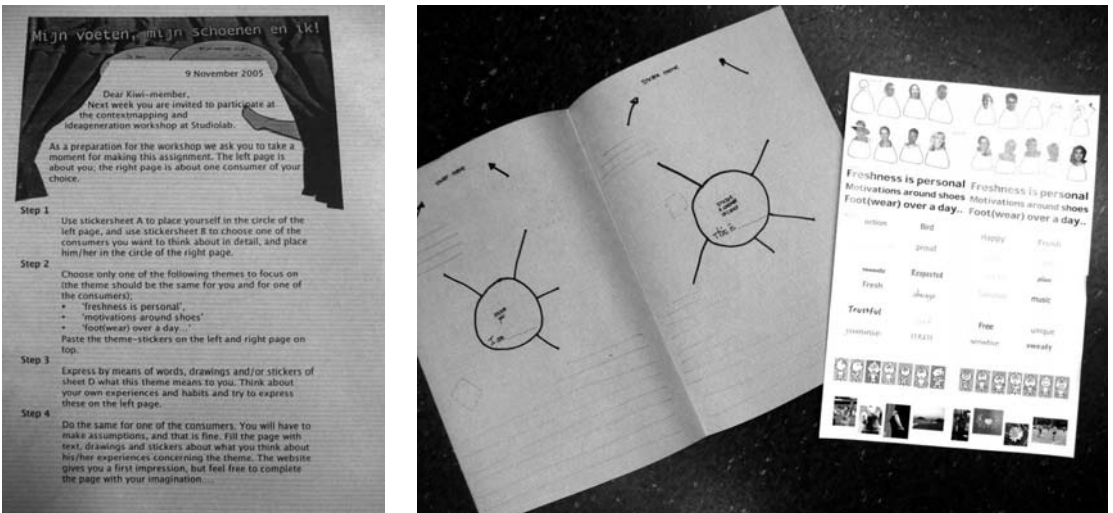 Mijn voeten, mijn schoenen en ik!
9 November 2005
Dear Kiwi-member,
Next week you are invited to participate at
the contextmapping and
ideageneration workshop at Studiolab.
As a preparation for the workshop we ask you to take a
moment for making this assignment. The left page is
about you; the right page is about one consumer of your
choice.
Step 1
Use stickersheet A to place yourself in the circle of the
left page, and use stickersheet B to choose one of the
consumers you want to think about in detail, and place
him/her in the circle of the right page.
Step 2
Choose only one of the following themes to focus on
(the theme should be the same for you and for one of
the consumers);
• 'freshness is personal',
• 'motivations around shoes'
• 'foot(wear) over a day...'
Paste the theme-stickers on the left and right page on
top.
Step 3
Express by means of words, drawings and/or stickers of
sheet D what this theme means to you. Think about
your own experiences and habits and try to express
these on the left page.
Step 4
Do the same for one of the consumers. You will have to
make assumptions, and that is fine. Fill the page with
text, drawings and stickers about what you think about
his/her experiences concerning the theme. The website
gives you a first impression, but feel free to complete
the page with your imagination....
I am
This is
Freshness is personal Freshness is personal
Motivations around shoes Motivations around shoes
Foot(wear) over a day.. Foot(wear) over a day..
action Bird Happy
proud
Respected
Fresh always music
Trustful Free unique
sensitive sweaty